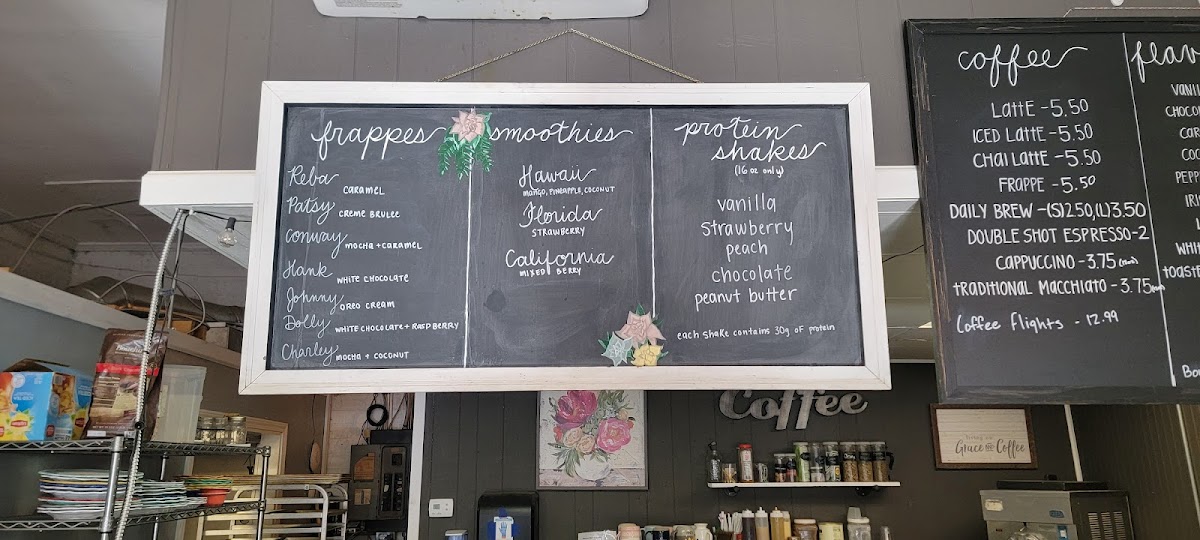 frappes
Reba CARAMEL
Patsy CREME BRULEE
Conway MOCHA + CARAMEL
Hank WHITE CHOCOLATE
Johnny OREO CREAM
Dolly WHITE CHOCOLATE + RASPBERRY
Charley MOCHA + COCONUT
smoothies
Hawaii
MANGO, PINEAPPLE, COCONUT
Florida
STRAWBERRY
California
MIXED BERRY
protein
shakes
(16 oz only)
vanilla
strawberry
peach
chocolate
peanut butter
each shake contains 30g of protein
coffee
LATTE - 5.50
ICED LATTE - 5.50
CHAI LATTE - 5.50
FRAPPE - 5.50
DAILY BREW - (S)2.50, (L)3.50
DOUBLE SHOT ESPRESSO - 2
CAPPUCCINO - 3.75
TRADITIONAL MACCHIATO - 3.75
Coffee Flights - 12.99
flav
VANIL
CHOCO
CAR
COC
PEPP
IRI
WHIT
TOASTE
Coffee
Grace and Coffee